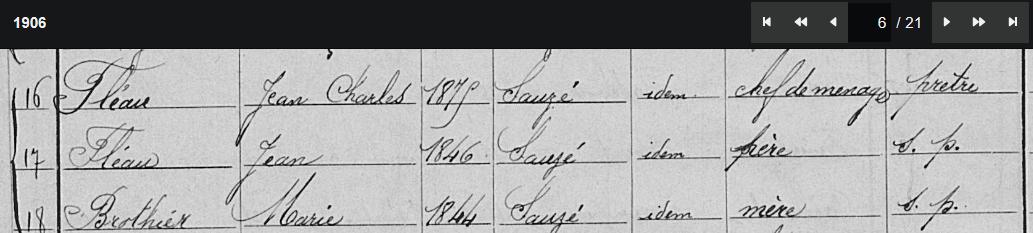 1906
6 / 21
16 Fléau Jean Charles 1875 Sauzé idem chef de menage prêtre
17 Fléau Jean 1846 Sauzé idem père s. p.
18 Brothier Marie 1844 Sauzé idem mère s. p.